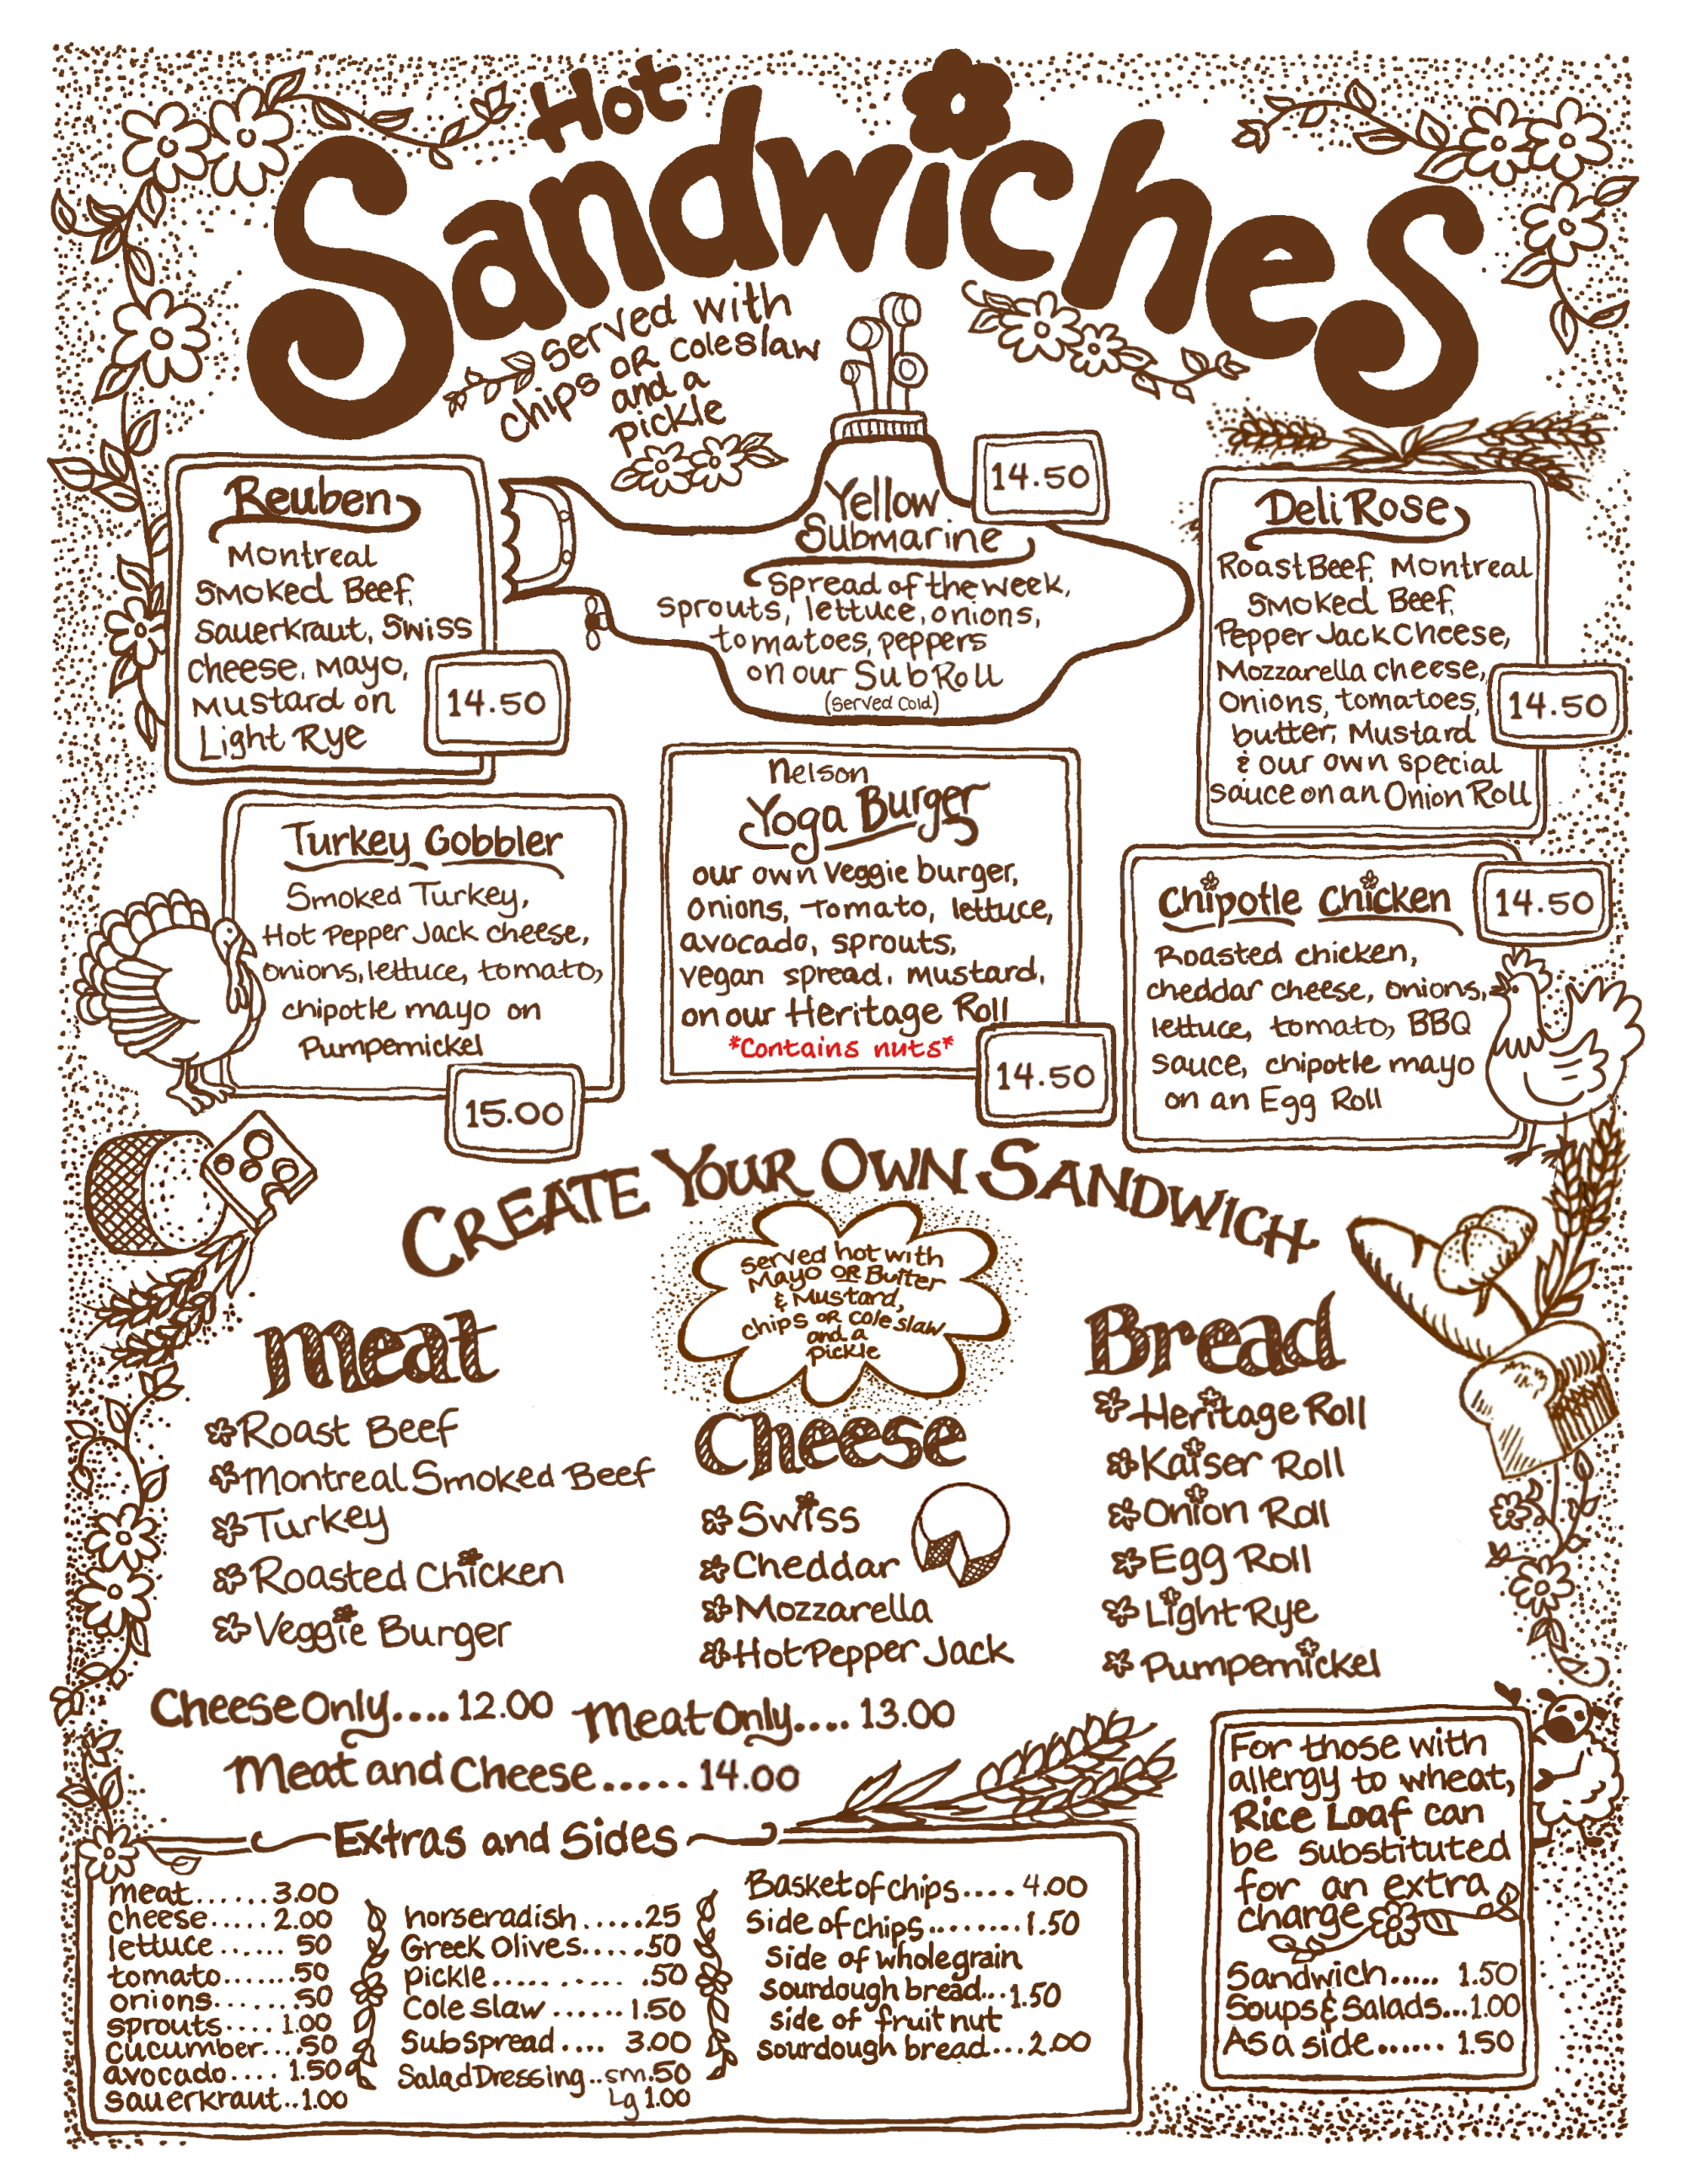 Hot
Sandwiches
served with
chips OR coleslaw
and a
pickle
Reuben
Montreal
Smoked Beef,
Sauerkraut, Swiss
cheese, Mayo,
Mustard on
Light Rye
14.50
Yellow
Submarine
14.50
Spread of the week,
Sprouts, lettuce, onions,
tomatoes, peppers
on our Sub Roll
(Served Cold)
Deli Rose
Roast Beef, Montreal
Smoked Beef,
Pepper Jack Cheese,
Mozzarella cheese,
Onions, tomatoes,
butter, Mustard
& our own special
sauce on an Onion Roll
14.50
Turkey Gobbler
Smoked Turkey,
Hot Pepper Jack cheese,
onions, lettuce, tomato,
chipotle mayo on
Pumpernickel
15.00
Nelson
Yoga Burger
our own Veggie burger,
Onions, Tomato, lettuce,
avocado, sprouts,
vegan spread, mustard,
on our Heritage Roll
*Contains nuts*
14.50
Chipotle Chicken
14.50
Roasted chicken,
cheddar cheese, onions,
lettuce, tomato, BBQ
sauce, chipotle mayo
on an Egg Roll
CREATE YOUR OWN SANDWICH
served hot with
Mayo OR Butter
& Mustard,
chips OR cole slaw
and a
pickle
Meat
Roast Beef
Montreal Smoked Beef
Turkey
Roasted Chicken
Veggie Burger
Cheese
Swiss
Cheddar
Mozzarella
Hot Pepper Jack
Bread
Heritage Roll
Kaiser Roll
Onion Roll
Egg Roll
Light Rye
Pumpernickel
Cheese Only.... 12.00
Meat Only.... 13.00
Meat and Cheese..... 14.00
Extras and Sides
meat......3.00
cheese.....2.00
lettuce...... 50
tomato.......50
onions.......50
sprouts.... 1.00
cucumber....50
avocado.... 1.50
sauerkraut..1.00
horseradish.....25
Greek Olives.....50
pickle........... .50
Cole slaw......1.50
Sub spread.... 3.00
Salad Dressing..sm.50
Lg 1.00
Basket of chips.... 4.00
Side of chips.........1.50
Side of wholegrain
sourdough bread...1.50
side of fruit nut
sourdough bread...2.00
For those with
allergy to wheat,
Rice Loaf can
be substituted
for an extra
charge
Sandwich..... 1.50
Soups & Salads...1.00
As a side...... 1.50